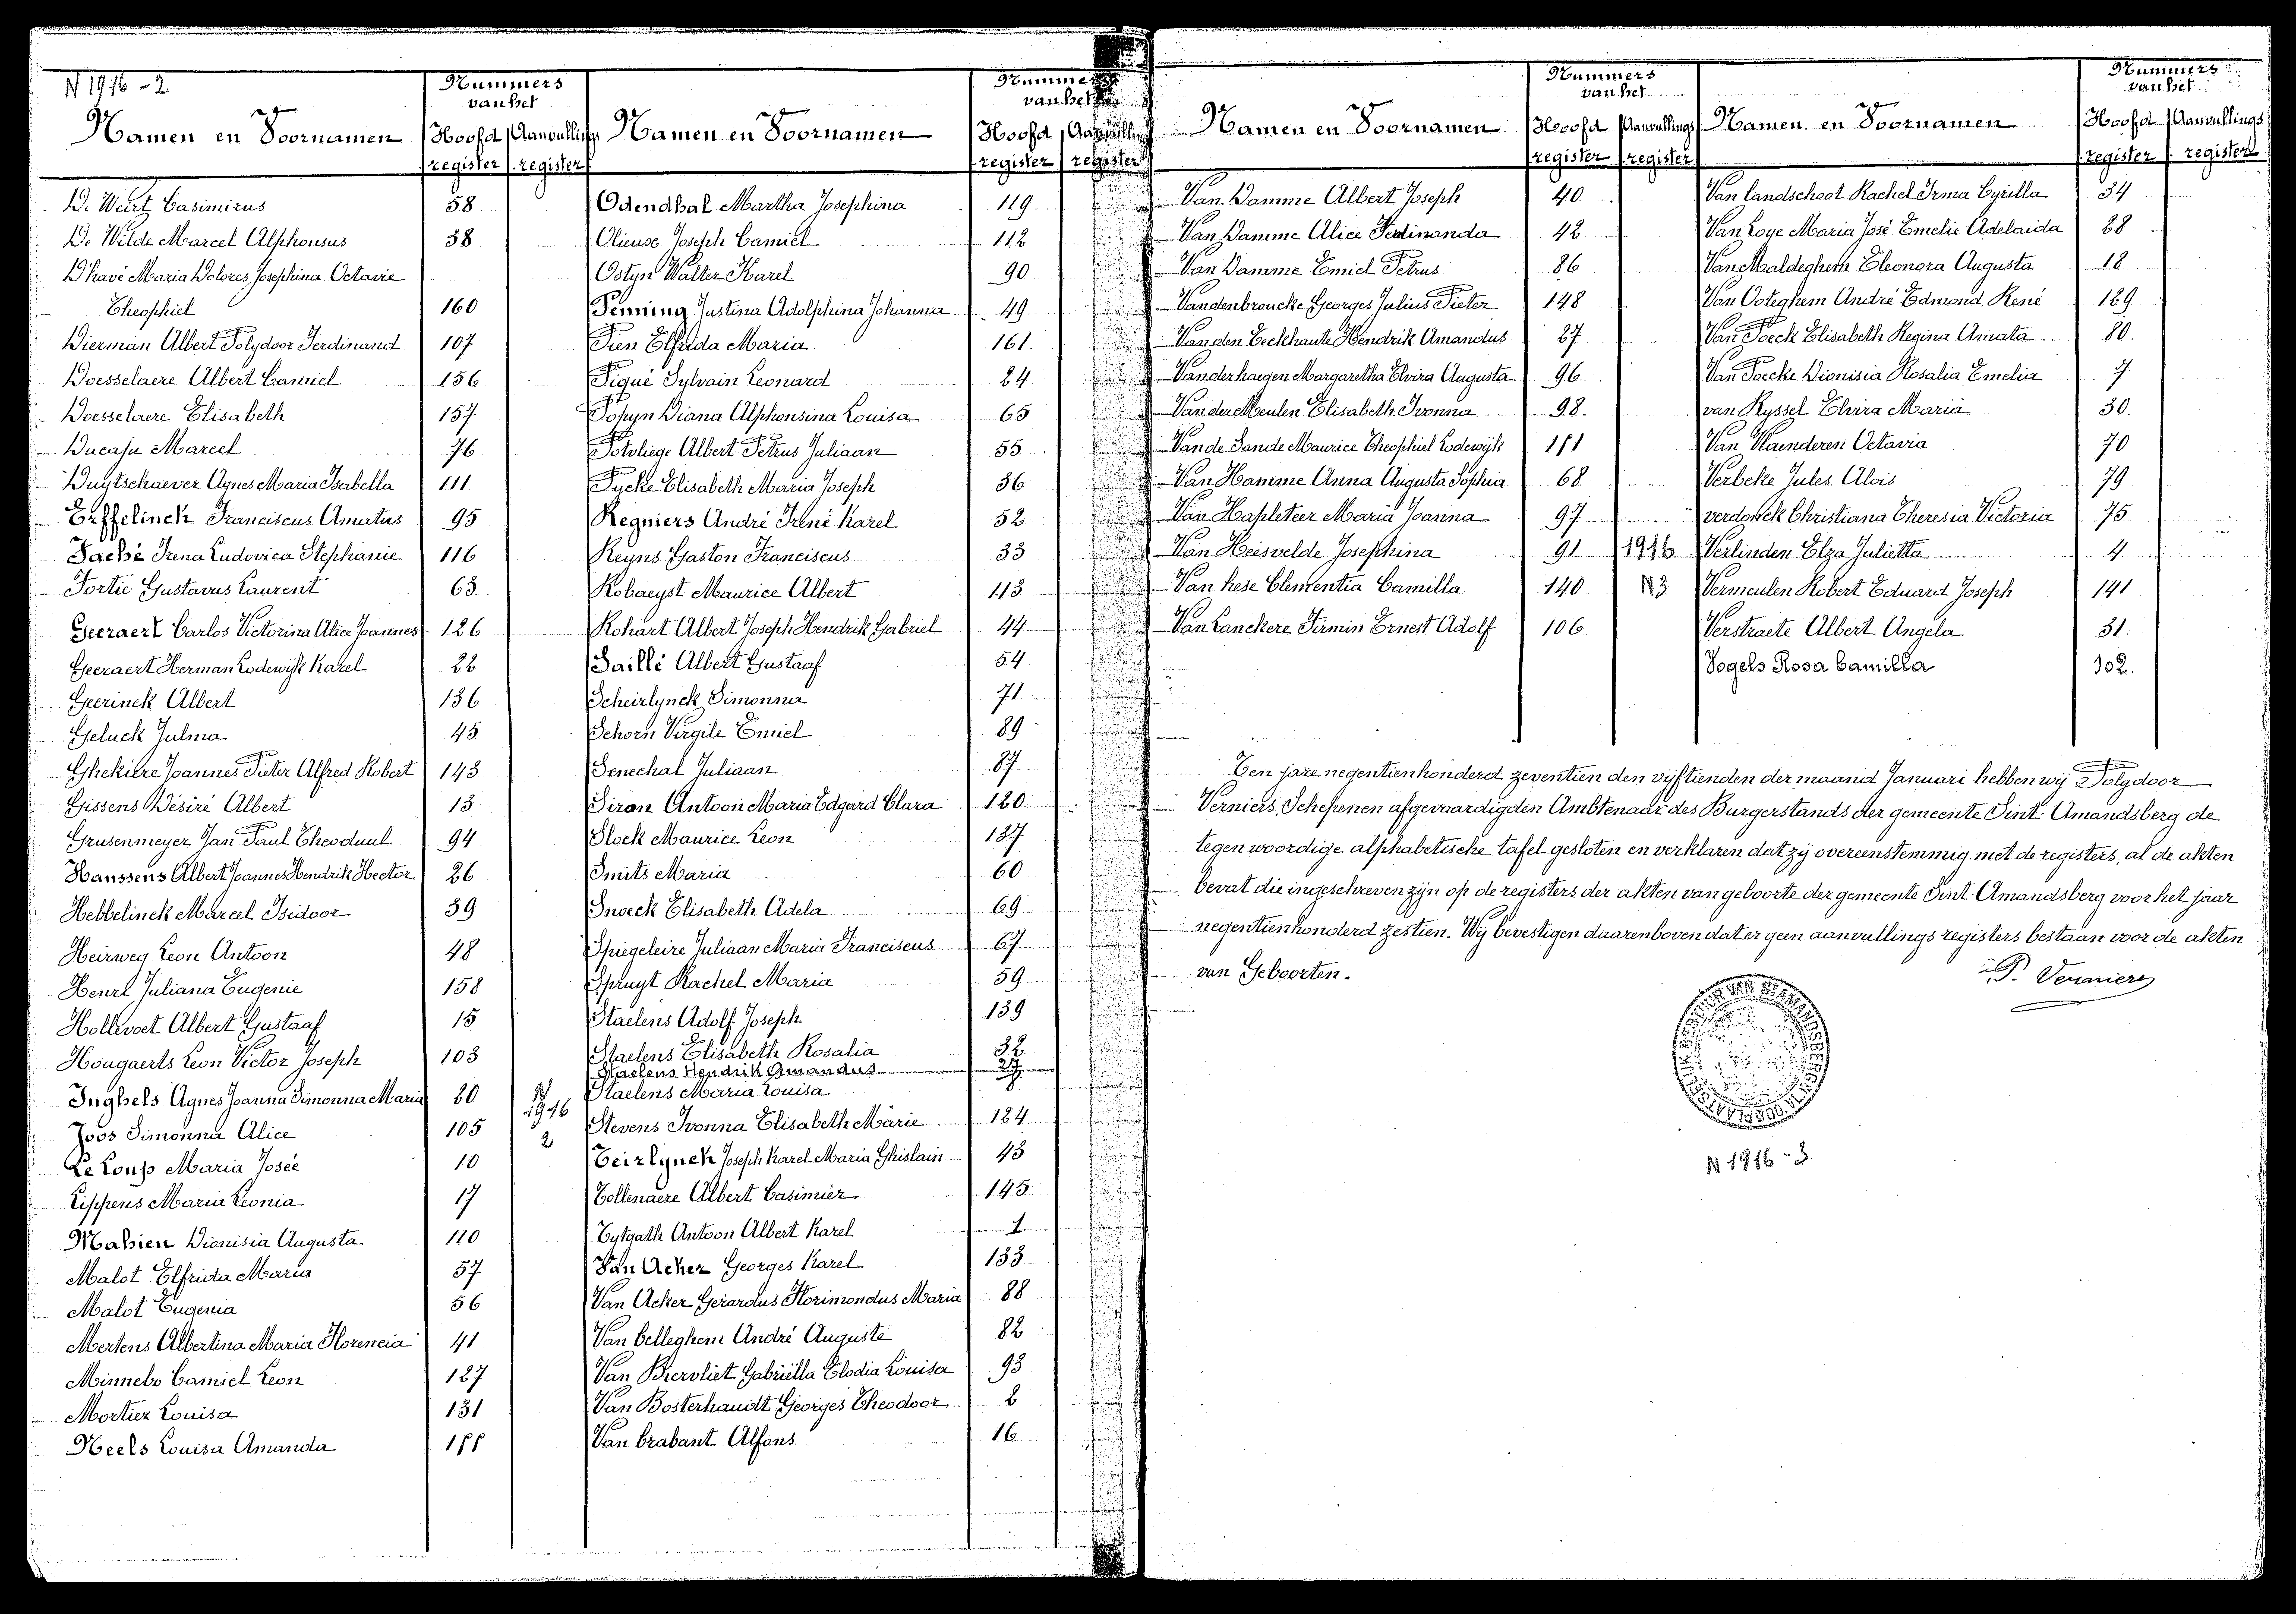 N 1916 - 2
Namen en Voornamen
Nummers
van het
Hoofd register
Aanvullings register
De Weirtz Casimirus 58
De Wilde Marcel Alphonsus 38
D'havé Maria Dolores Josephina Octavie
Theophiel 160
Dierman Albert Polydoor Ferdinand 107
Doesselaere Albert Camiel 156
Doesselaere Elisabeth 157
Ducaju Marcel 76
Duytschaever Agnes Maria Isabella 111
Erffelinck Franciscus Amatus 95
Faché Irena Ludovica Stephanie 116
Fortie Gustavus Laurent 63
Geeraert Carlos Victorina Alice Joannes 126
Geeraert Herman Lodewijk Karel 22
Geerinck Albert 136
Geluck Julma 45
Ghekiere Joannes Pieter Alfred Robert 143
Gissens Désiré Albert 13
Grusenmeyer Jan Paul Theoduul 94
Hanssens Albert Joannes Hendrik Hector 26
Hebbelinck Marcel Isidoor 39
Heirweg Leon Antoon 48
Henri Juliana Eugenie 158
Hollevoet Albert Gustaaf 15
Hougaerts Leon Victor Joseph 103
Inghels Agnes Joanna Simonna Maria 20
Joos Simonna Alice 105
Le Loup Maria Josée 10
Lippens Maria Leonia 17
Mahieu Dionisia Augusta 110
Malot Elfrida Maria 57
Malot Eugenia 56
Mertens Albertina Maria Florencia 41
Minnebo Camiel Leon 127
Mortier Louisa 131
Neels Louisa Amanda 155
N
1916
2
Namen en Voornamen
Nummers
van het
Hoofd register
Aanvullings register
Odendhal Martha Josephina 119
Olieuse Joseph Camiel 112
Ostyn Walter Karel 90
Penning Justina Adolphina Johanna 49
Pien Elfrida Maria 161
Piqué Sylvain Leonard 24
Popyn Diana Alphonsina Louisa 65
Potvliege Albert Petrus Juliaan 55
Pycke Elisabeth Maria Joseph 36
Regniers André Irené Karel 52
Reyns Gaston Franciscus 33
Robaeyst Maurice Albert 113
Rohart Albert Joseph Hendrik Gabriel 44
Saillé Albert Gustaaf 54
Scheirlynck Simonna 71
Schorn Virgile Emiel 89
Senechal Juliaan 87
Siron Antoon Maria Edgard Clara 120
Slock Maurice Leon 137
Smits Maria 60
Snoeck Elisabeth Adela 69
Spiegeleire Juliaan Maria Franciscus 67
Spruyt Rachel Maria 59
Staelens Adolf Joseph 139
Staelens Elisabeth Rosalia 32
Staelens Hendrik Amandus 27
Staelens Maria Louisa
Stevens Ivonna Elisabeth Marie 124
Teirlynck Joseph Karel Maria Ghislain 43
Tollenaere Albert Casimier 145
Tytgath Antoon Albert Karel 1
Van Acker Georges Karel 133
Van Acker Gerardus Florimondus Maria 88
Van belleghem André Auguste 82
Van Biervliet Gabriëlla Elodia Louisa 93
Van Bosterhaudt Georges Theodoor 2
Van brabant Alfons 16
Namen en Voornamen
Nummers
van het
Hoofd register
Aanvullings register
Van Damme Albert Joseph 40
Van Damme Alice Ferdinanda 42
Van Damme Emiel Petrus 86
Vandenbroucke Georges Julius Pieter 148
Van den Eeckhaute Hendrik Amandus 27
Vanderhaegen Margaretha Elvira Augusta 96
Van der Meulen Elisabeth Ivonna 98
Van de Sande Maurice Theophiel Lodewijk 151
Van Hamme Anna Augusta Sophia 68
Van Hapleteer Maria Joanna 97
Van Heisvelde Josephina 91
Van hese Clementia Camilla 140
Van Lanckere Firmin Ernest Adolf 106
1916
N 3
Namen en Voornamen
Nummers
van het
Hoofd register
Aanvullings register
Van landschoot Rachel Irma Cyrilla 34
Van Loye Maria José Emelie Adelaida 28
Van Maldeghem Eleonora Augusta 18
Van Ooteghem André Edmond René 129
Van Poeck Elisabeth Regina Amata 80
Van Poecke Dionisia Rosalia Emelia 7
van Ryssel Elvira Maria 30
Van Vlaenderen Octavia 70
Verbeke Jules Alois 79
verdonck Christiana Theresia Victoria 75
Verlinden Elza Julietta 4
Vermeulen Robert Eduard Joseph 141
Verstraete Albert Angela 31
Vogels Rosa Camilla 102
Ten jare negentienhonderd zeventien den vijftienden der maand Januari hebben wij Polydoor
Verniers, Schepenen afgevaardigden Ambtenaar des Burgerstands der gemeente Sint-Amandsberg de
tegenwoordige alphabetische tafel gesloten en verklaren dat zij overeenstemmig met de registers, al de akten
bevat die ingeschreven zijn op de registers der akten van geboorte der gemeente Sint-Amandsberg voor het jaar
negentienhonderd zestien. Wij bevestigen daarenboven dat er geen aanvullings registers bestaan voor de akten
van Geboorten.
P. Verniers
N 1916 - 3.